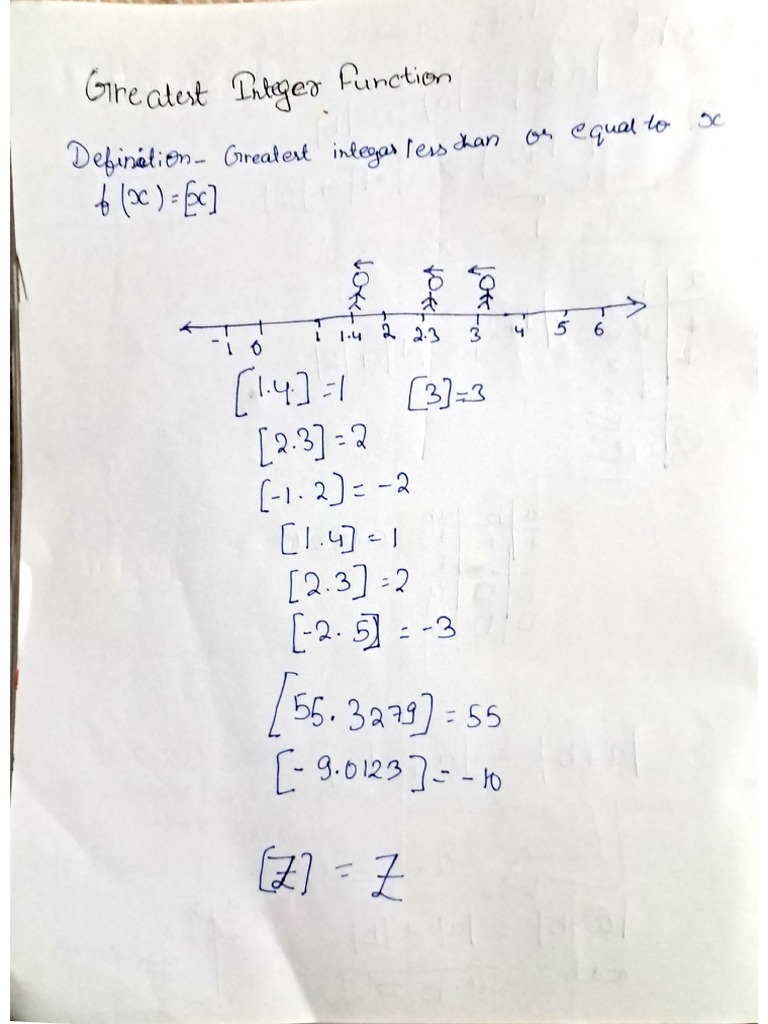 Greatest Integer Function
Definition - Greatest integar less than or equal to x
f(x)=[x]
-1 0 1 1.4 2 2.3 3 4 5 6
[1.4.]=1 [3]=3
[2.3]=2
[-1.2]=-2
[1.4]=1
[2.3]=2
[-2.5]=-3
[55.3279]=55
[-9.0123]=-10
[Z]=Z